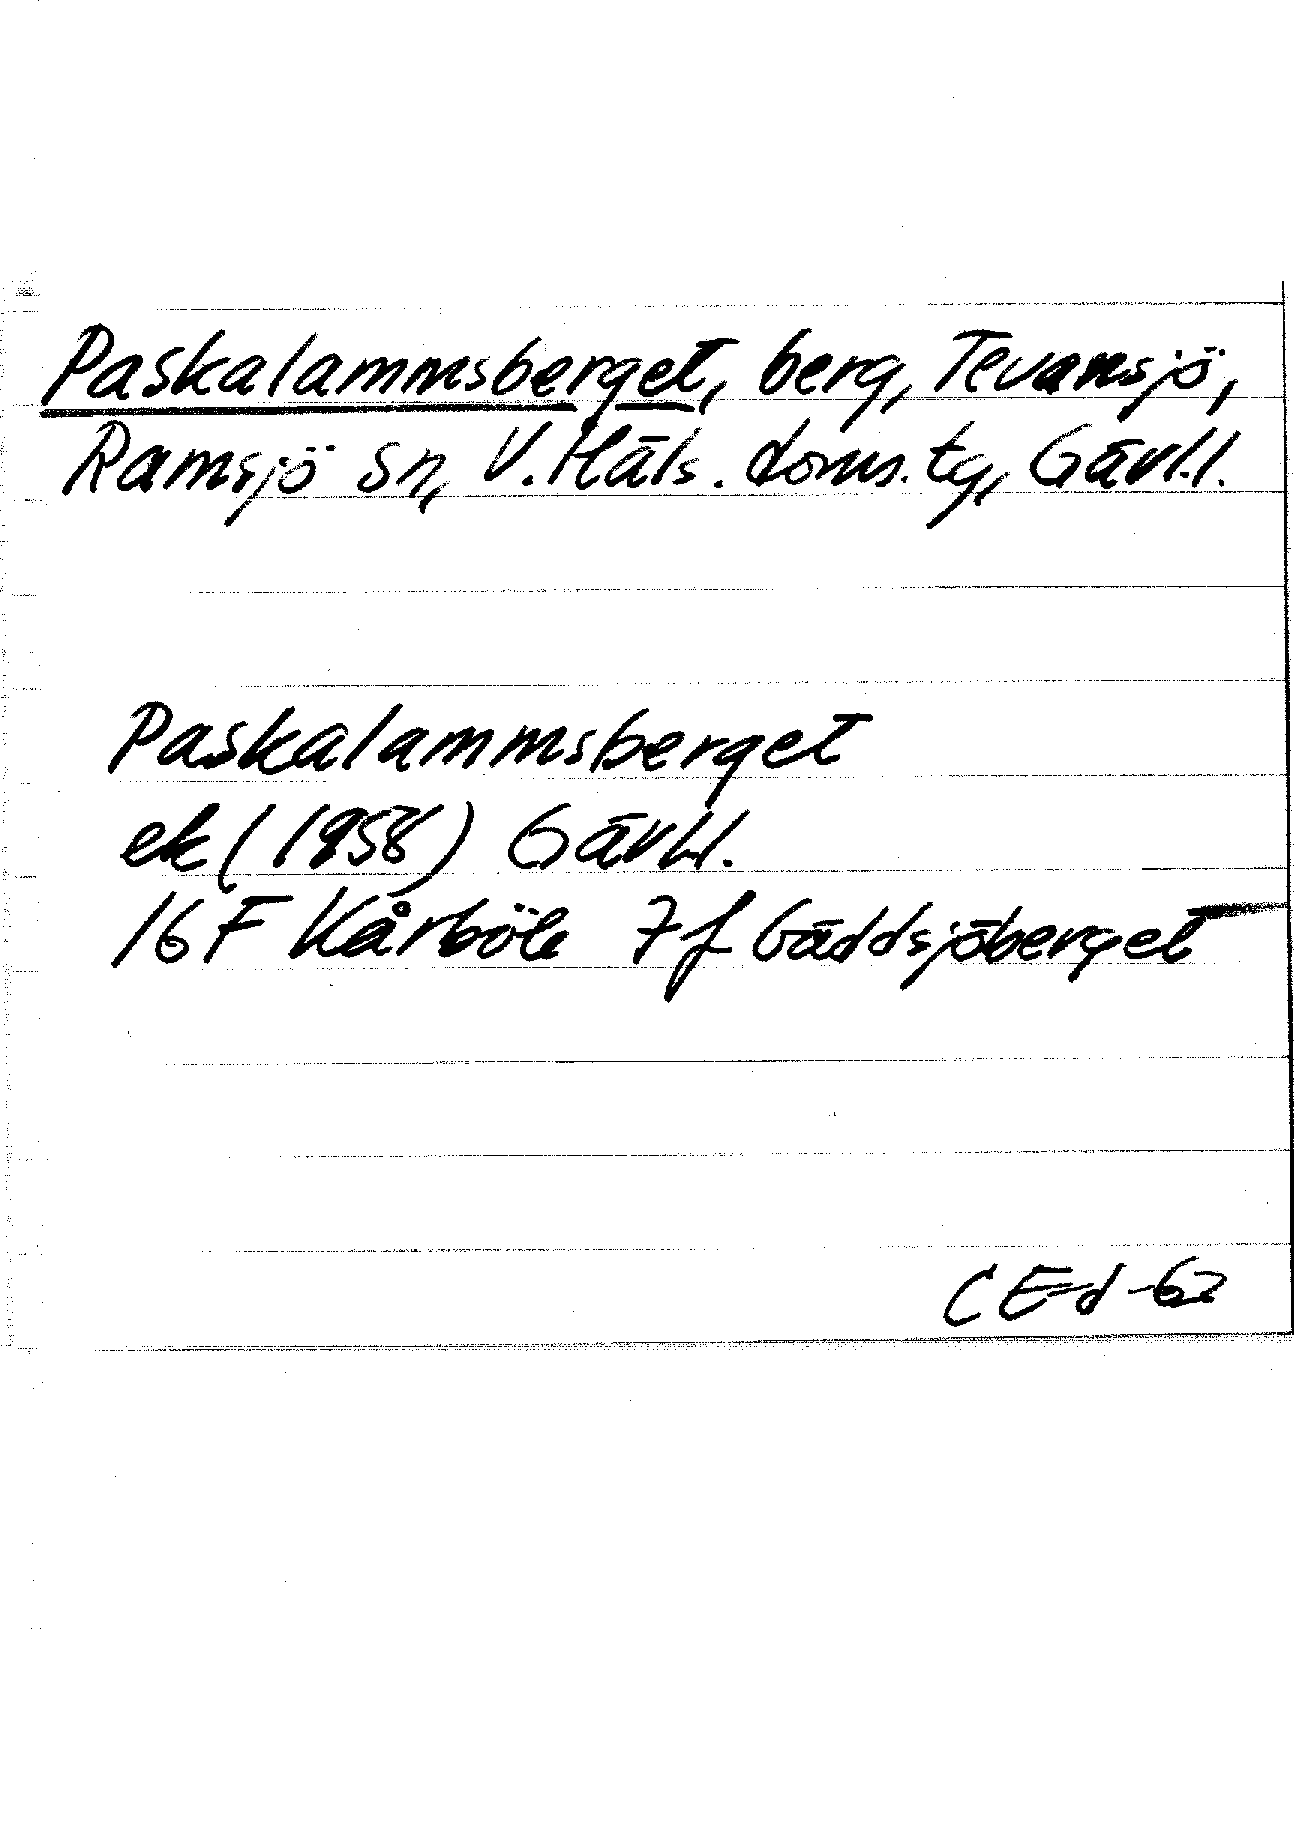 Paskalammsberget, berg, Tevansjö,
Ramsjö sn, V. Häls. doms. tg, Gävl.l.
Paskalammsberget
ek (1958) Gävl.l.
16 F Kårböle 7f Gäddsjöberget
CEd -62